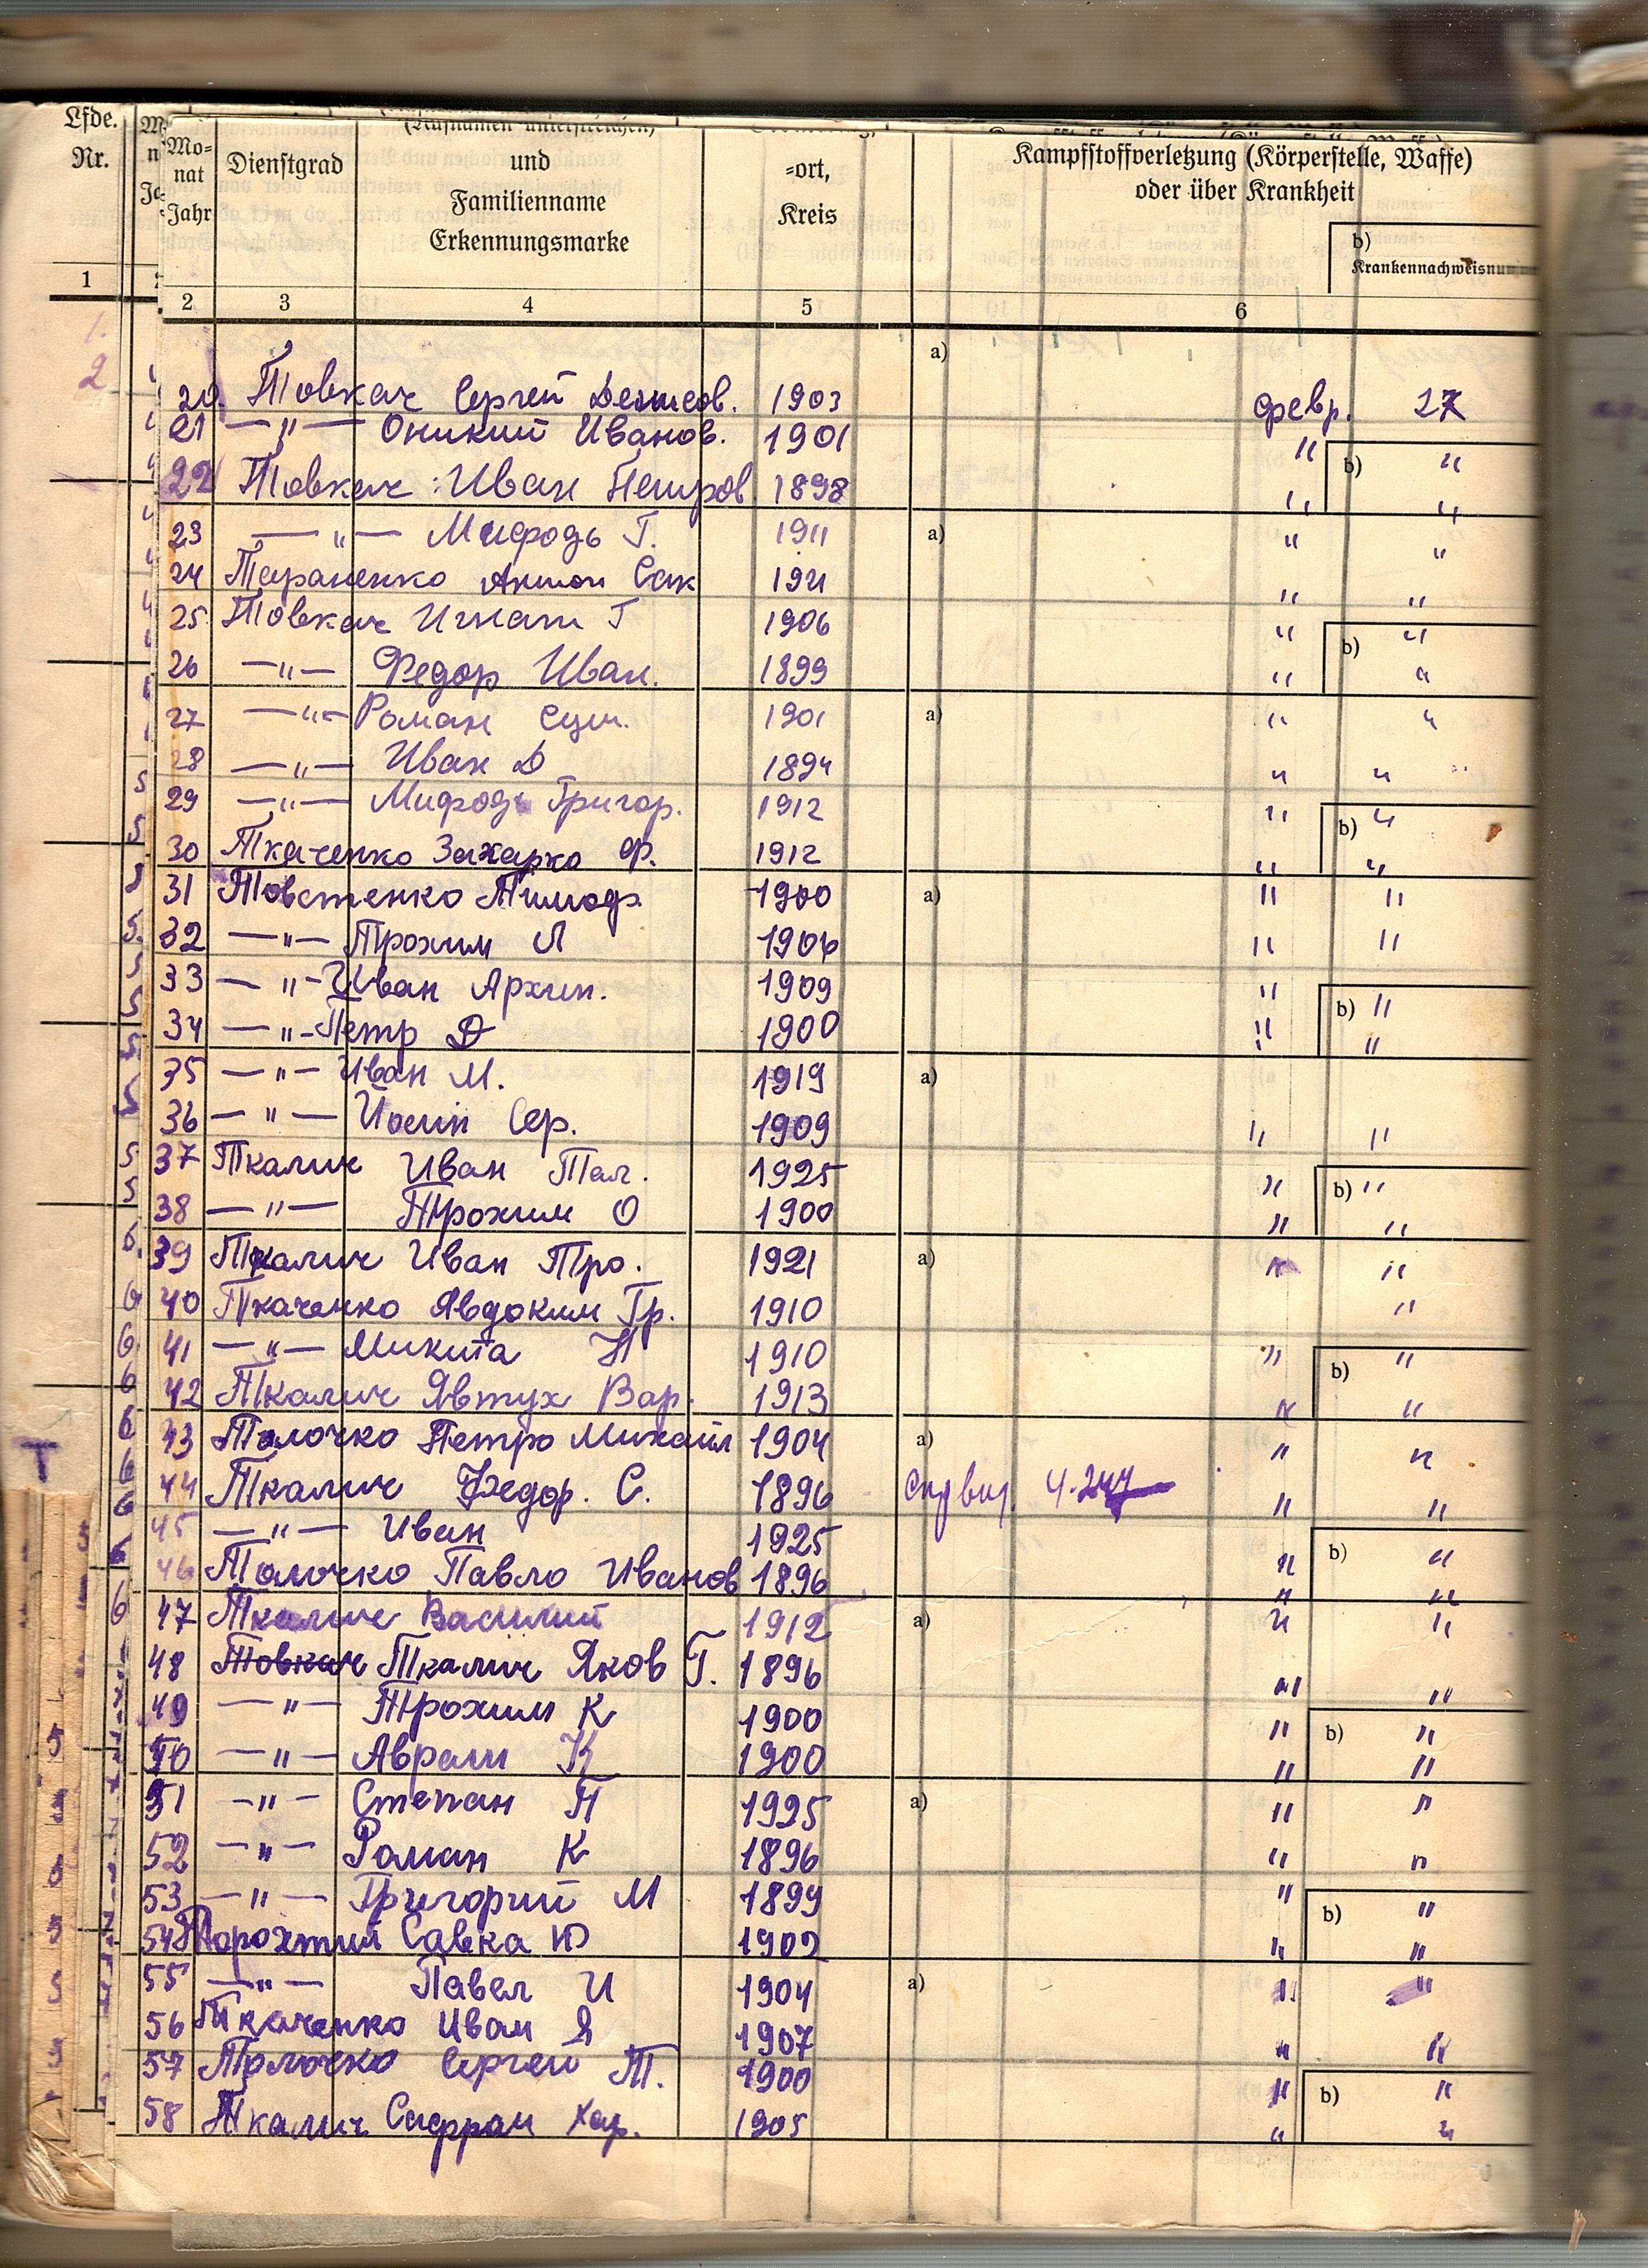 Lfde.
Nr.
Mo-
nat
Jahr
Dienstgrad
(Rufnamen unterstreichen)
und
Familienname
Erkennungsmarke
=ort,
Kreis
Kampfstoffverletzung (Körperstelle, Waffe)
oder über Krankheit
b)
Krankennachweisnum
1 2 3 4 5 6
1.
2
a)
20. Товкач Сергей Денисов. 1903 февр. 27
21 —"— Оникий Иванов. 1901 " b) "
22 Товкач Иван Петров 1898 " "
23 —"— Мифодь Г. 1911 a) " "
24 Тараненко Антон Сак 1921 " "
25 Товкач Игнат Г 1906 " b) "
26 —"— Федор Иван. 1899 " "
27 —"— Роман 1901 a) " "
28 —"— Иван Д 1894 " "
29 —"— Мифодь Григор. 1912 " b) "
30 Ткаченко Захарко Ф. 1912 " "
31 Товстенко 1900 a) " "
32 —"— Трохим Л 1906 " "
33 —"— Иван Архип. 1909 " b) "
34 —"— Петр Д 1900 " "
35 —"— Иван М. 1919 a)
36 —"— Йосип Сер. 1909 " "
37 Ткалич Иван 1925 " b) "
38 —"— Трохим О 1900 " "
39 Ткалич Иван Тро. 1921 a) " "
40 Ткаченко Явдоким Гр. 1910 "
41 —"— Микита Н 1910 " b) "
42 Ткалич Явтух Вар. 1913 " "
43 Толочко Петро Михайл 1904 a) " "
44 Ткалич Федор. С. 1896 " "
45 —"— Иван 1925 b) "
46 Толочко Павло Иванов 1896 " "
47 Ткалич Василий 1912 a) " "
48 Товкач Ткалич Яков Г. 1896 " "
49 —"— Трохим К 1900 " b) "
50 —"— Аврам К 1900 " "
51 —"— Степан П 1925 a) " "
52 —"— Роман К 1896 " "
53 —"— Григорий М 1899 " b) "
54 Савка Ю 1902 " "
55 —"— Павел И 1904 a) " "
56 Ткаченко Иван Я 1907 " "
57 Толочко Сергей Т. 1900 " b) "
58 Ткалич Сафрон Хар. 1905 " "
Т